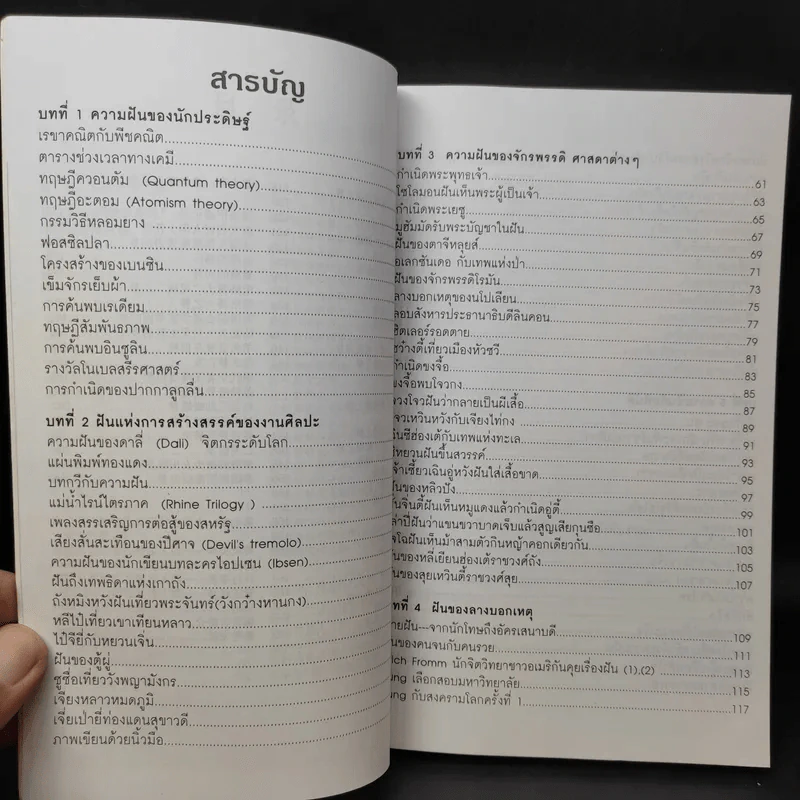 สารบัญ
บทที่ 1 ความฝันของนักประดิษฐ์
เรขาคณิตกับพีชคณิต
ตารางช่วงเวลาทางเคมี
ทฤษฎีควอนตัม (Quantum theory)
ทฤษฎีอะตอม (Atomism theory)
กรรมวิธีหลอมยาง
ฟอสซิลปลา
โครงสร้างของเบนซิน
เข็มจักรเย็บผ้า
การค้นพบเรเดียม
ทฤษฎีสัมพันธภาพ
การค้นพบอินซูลิน
รางวัลโนเบลสรีรศาสตร์
การกำเนิดของปากกาลูกลื่น
บทที่ 2 ฝันแห่งการสร้างสรรค์ของงานศิลปะ
ความฝันของดาลี่ (Dali) จิตกรระดับโลก
แผ่นพิมพ์ทองแดง
บทกวีกับความฝัน
แม่น้ำไรน์ไตรภาค (Rhine Trilogy )
เพลงสรรเสริญการต่อสู้ของสหรัฐ
เสียงสั่นสะเทือนของปีศาจ (Devil's tremolo)
ความฝันของนักเขียนบทละครไอปเซน (Ibsen)
ฝันถึงเทพธิดาแห่งเกาถัง
ถังหมิงหวังฝันเที่ยวพระจันทร์(วังกว๋างหานกง)
หลีไป๋เที่ยวเขาเทียนหลาว
ไป๋จีอี่กับหยวนเจิ่น
ฝันของตู้ผู่
ซูซื่อเที่ยววังพญามังกร
เจียงหลาวหมดภูมิ
เจี่ยเป่ายี่ท่องแดนสุขาวดี
ภาพเขียนด้วยนิ้วมือ
บทที่ 3 ความฝันของจักรพรรดิ ศาสดาต่างๆ
กำเนิดพระพุทธเจ้า 61
โซโลมอนฝันเห็นพระผู้เป็นเจ้า 63
กำเนิดพระเยซู 65
มูฮัมมัดรับพระบัญชาในฝัน 67
ฝันของตาจีหลุยส์ 69
อเลกซันเดอ กับเทพแห่งป่า 71
ฝันของจักรพรรดิโรมัน 73
ลางบอกเหตุของนโปเลียน 75
ลอบสังหารประธานาธิบดีลินคอน 77
ฮิตเลอร์รอดตาย 79
เที่ยวเมืองหัวซวี 81
กำเนิดขงจื้อ 83
ขงจื้อพบโจวกง 85
จวงโจวฝันว่ากลายเป็นผีเสื้อ 87
โจวเหวินหวังกับเจียงไท่กง 89
ฉินซีฮ่องเต้กับเทพแห่งทะเล 91
ฝันขึ้นสวรรค์ 93
จ้าเซี้ยวเฉินอู่หวังฝันใส่เสื้อขาด 95
ฝันของหลิวปัง 97
ฝันเห็นหมูแดงแล้วกำเนิดอู่ตี้ 99
ล่าปี่ฝันว่าแขนขวาบาดเจ็บแล้วสูญเสียกุนซือ 101
โจโฉฝันเห็นม้าสามตัวกินหญ้าคอกเดียวกัน 103
ฝันของหลี่เยียนฮ่องเต้ราชวงศ์ถัง 105
ฝันของสุยเหวินตี้ราชวงศ์สุย 107
บทที่ 4 ฝันของลางบอกเหตุ
ฝัน---จากนักโทษถึงอัครเสนาบดี 109
ฝันของคนจนกับคนรวย 111
Fromm นักจิตวิทยาชาวอเมริกันคุยเรื่องฝัน (1),(2) 113
เลือกสอบมหาวิทยาลัย 115
กับสงครามโลกครั้งที่ 1 117